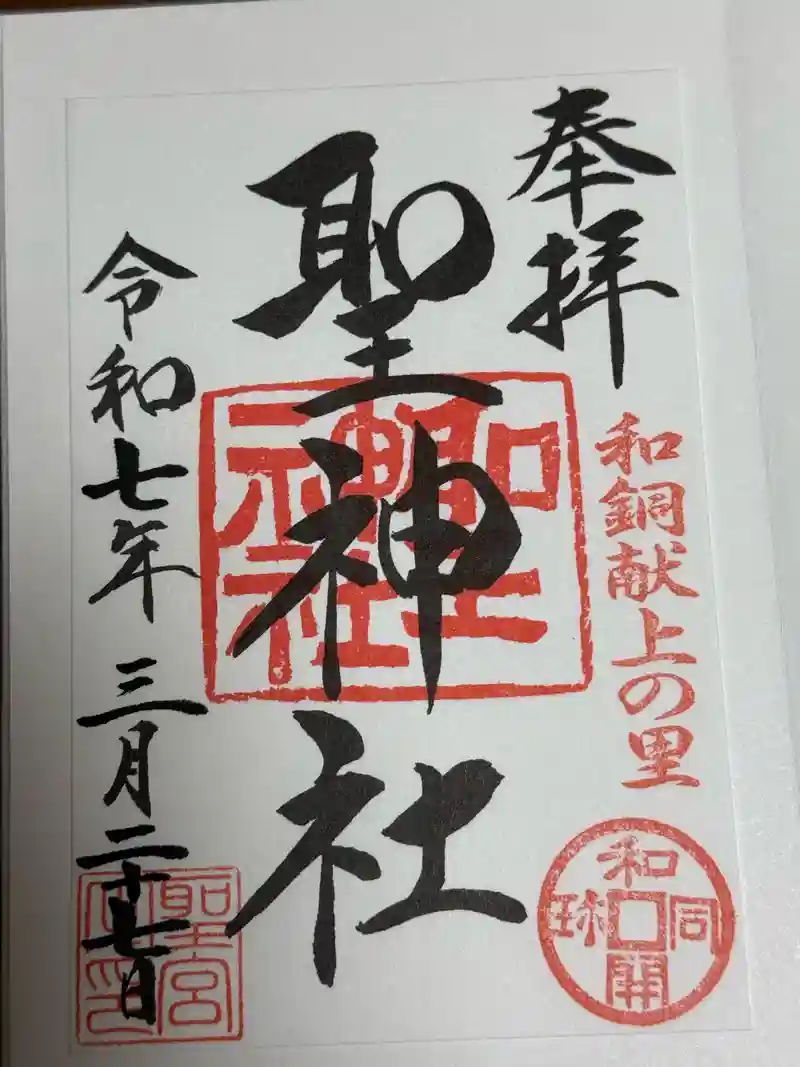 奉拝
和銅献上の里
和同開珎
聖神社
聖神社
令和七年三月二十七日
聖宮